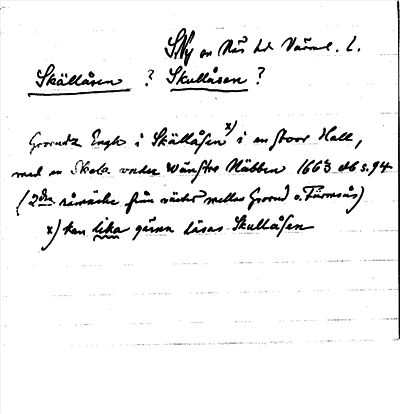 S. Ny sn Näs hd Värml. l.
Skällåsen ? Skullåsen ?
Grorudz Engh i Skällåsen x) i en stoor Hall,
med en Skola under Wänstre Näbben 1663 db s. 94
(2dra råmärke från väster mellan Grorud o. Furmoås)
x) kan lika gärna läsas Skullåsen